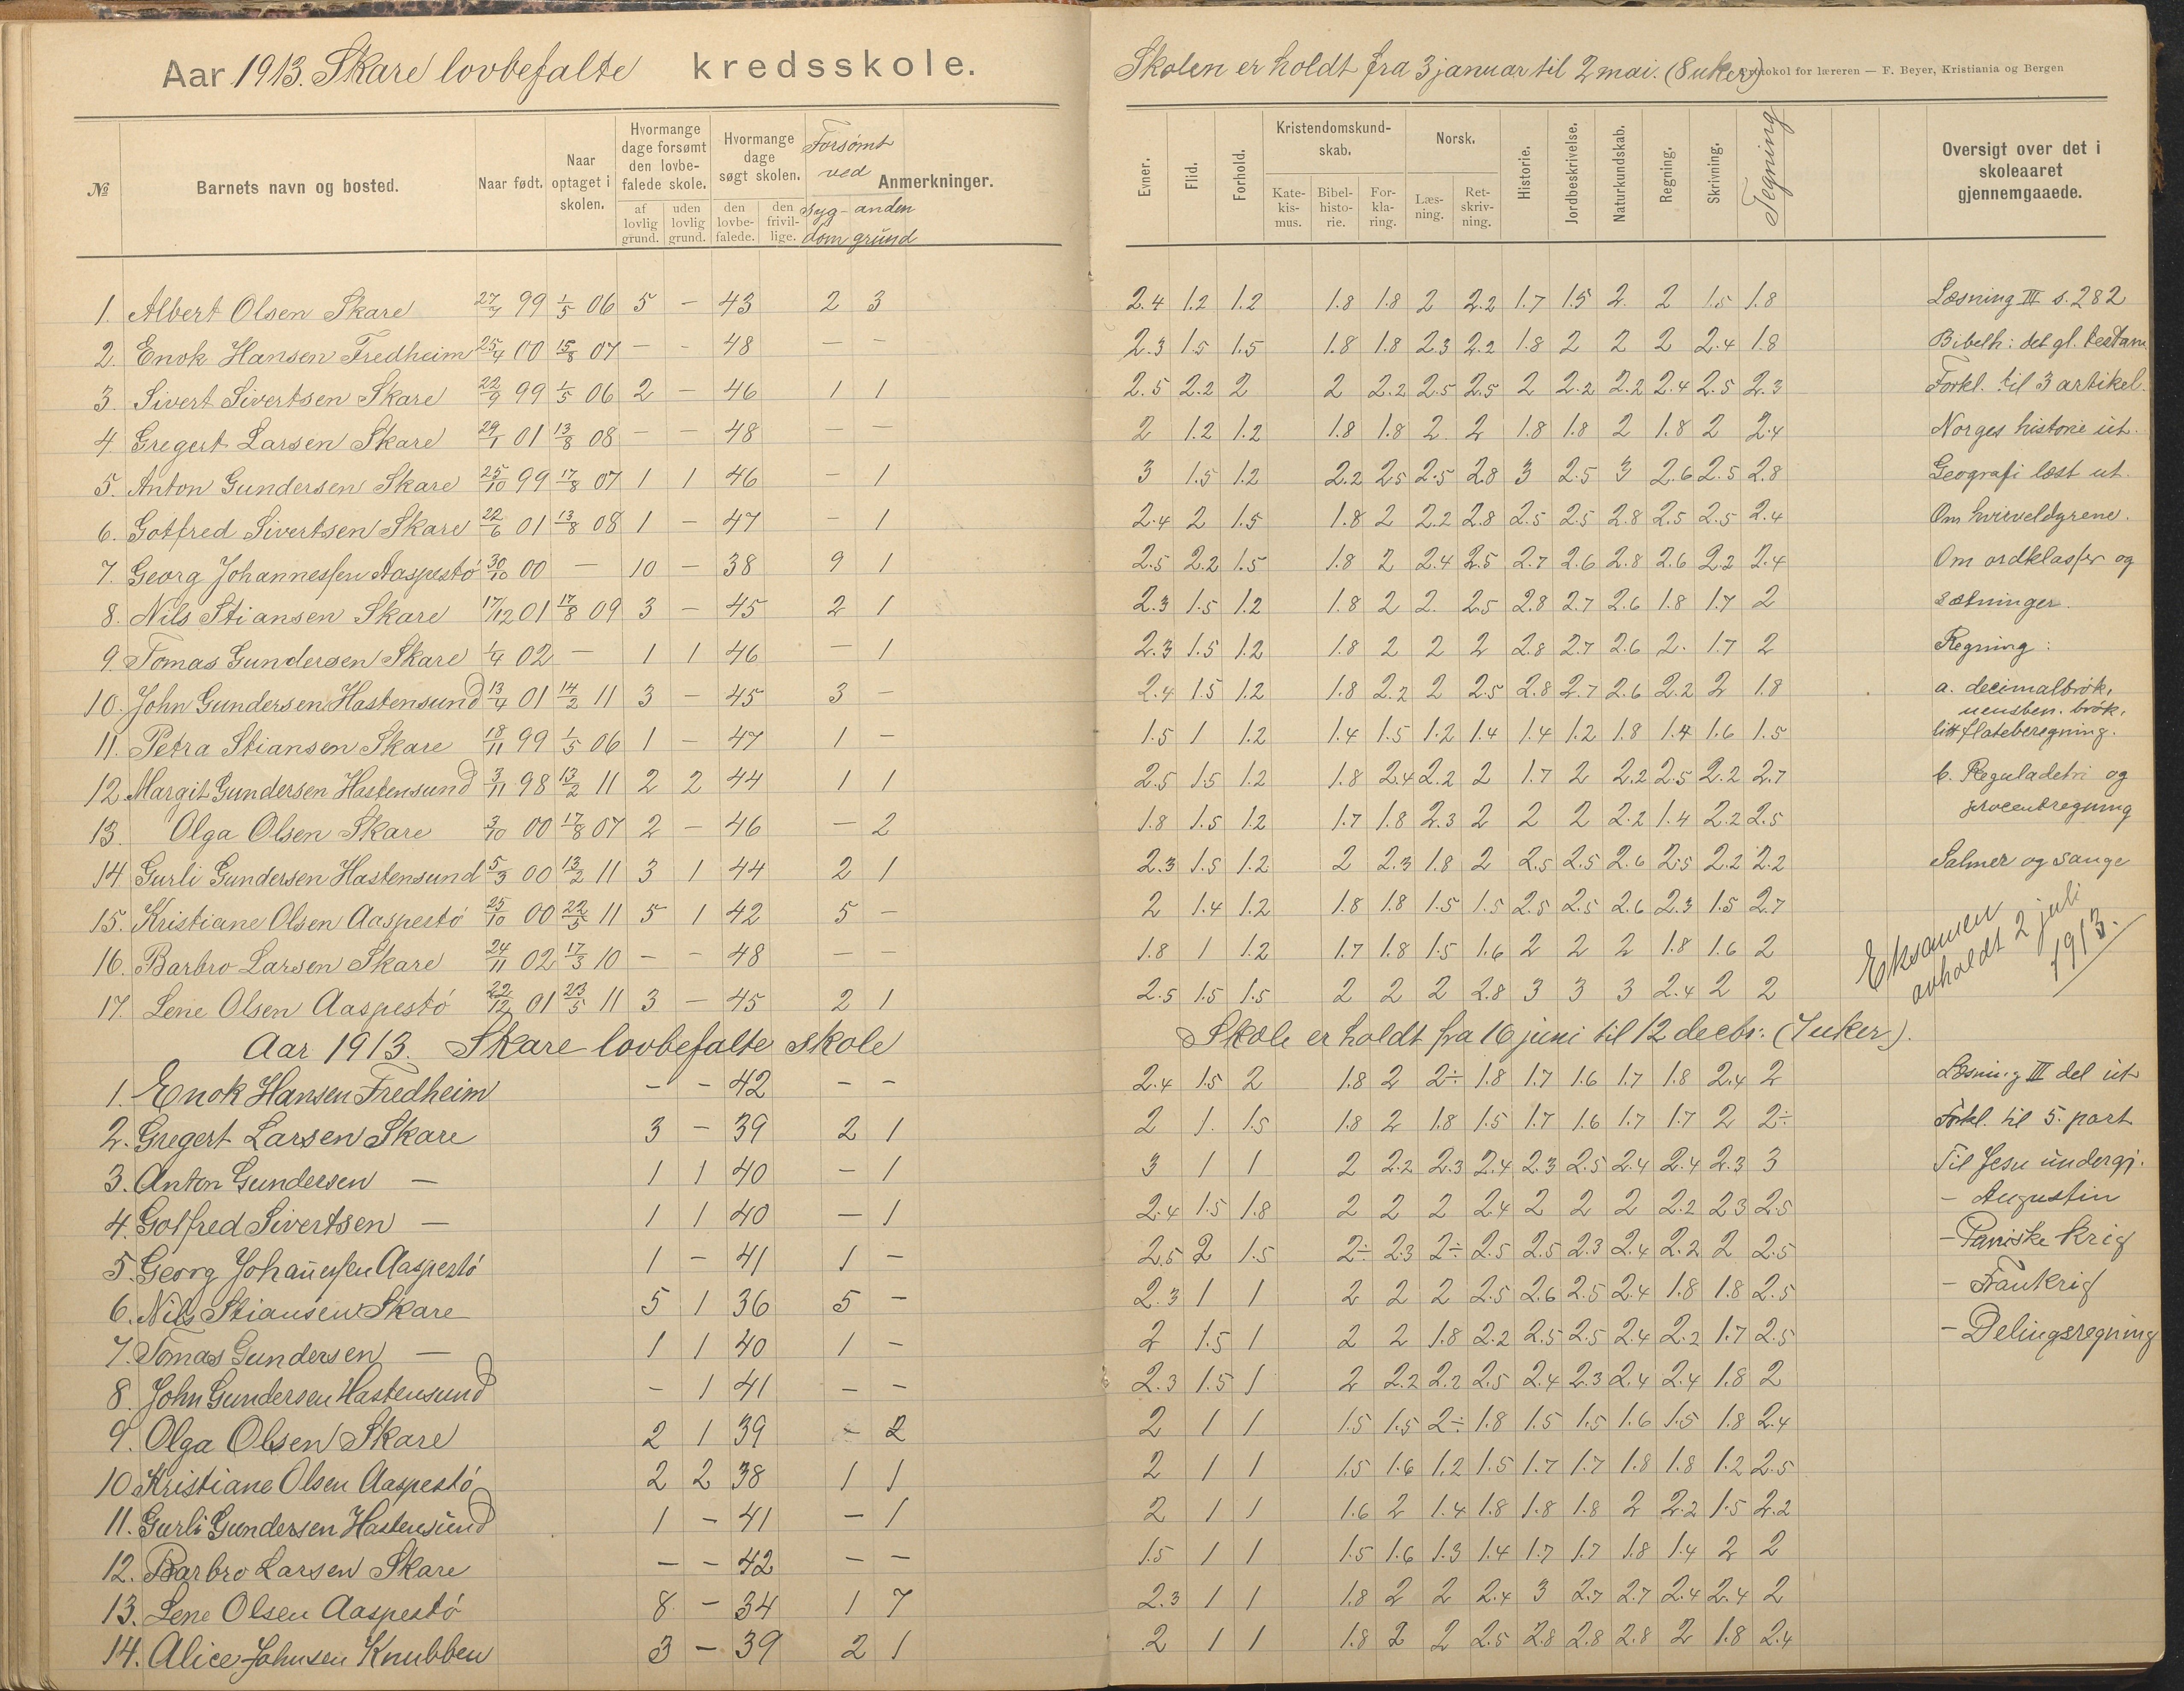 Aar 1913. Skare lovbefalte kredsskole.
№ Barnets navn og bosted. Naar født. Naar optaget i skolen. Hvormange dage forsømt den lovbefalede skole. af lovlig grund. uden lovlig grund. Hvormange dage søgt skolen. den lovbefalede. den frivillige. Forsømt ved sygdom anden grund Anmerkninger.
1. Albert Olsen Skare 27/7 99 1/5 06 5 - 43 2 3
2. Enok Hansen Fredheim 25/4 00 15/8 07 - - 48 - -
3. Sivert Sivertsen Skare 22/9 99 1/5 06 2 - 46 1 1
4. Gregert Larsen Skare 29/1 01 13/8 08 - - 48 - -
5. Anton Gundersen Skare 25/10 99 17/8 07 1 1 46 - 1
6. Gotfred Sivertsen Skare 22/6 01 13/8 08 1 - 47 - 1
7. Georg Johannessen Aaspestø 30/10 00 - 10 - 38 9 1
8. Nils Stiansen Skare 17/12 01 17/8 09 3 - 45 2 1
9. Tomas Gundersen Skare 1/4 02 - 1 1 46 - 1
10. John Gundersen Hastensund 13/4 01 14/2 11 3 - 45 3 -
11. Petra Stiansen Skare 18/11 99 1/5 06 1 - 47 1 -
12. Margit Gundersen Hastensund 3/11 98 13/2 11 2 2 44 1 1
13. Olga Olsen Skare 3/10 00 17/8 07 2 - 46 - 2
14 Gurli Gundersen Hastensund 5/3 00 13/2 11 3 1 44 2 1
15. Kristiane Olsen Aaspestø 25/10 00 22/5 11 5 1 42 5 -
16. Barbro Larsen Skare 24/11 02 17/3 10 - - 48 - -
17. Lene Olsen Aaspestø 22/12 01 23/5 11 3 - 45 2 1
Aar 1913. Skare lovbefalte skole
1. Enok Hansen Fredheim - - 42 - -
2. Gregert Larsen Skare 3 - 39 2 1
3. Anton Gundersen — 1 1 40 - 1
4. Gotfred Sivertsen — 1 1 40 - 1
5. Georg Johannessen Aaspestø 1 - 41 1 -
6. Nils Stiansen Skare 5 1 36 5 -
7. Tomas Gundersen — 1 1 40 1 -
8. John Gundersen Hastensund - 1 41 - -
9. Olga Olsen Skare 2 1 39 - 2
10 Kristiane Olsen Aaspestø 2 2 38 1 1
11. Gurli Gundersen Hastensund 1 - 41 - 1
12. Barbro Larsen Skare - - 42 - -
13. Lene Olsen Aaspestø 8 - 34 1 7
14. Alice Johnsen Knubben 3 - 39 2 1
Skolen er holdt fra 3 januar til 2 mai. (8 uker) Protokol for læreren — F. Beyer, Kristiania og Bergen
Evner. Flid. Forhold. Kristendomskundskab. Katekismus. Bibelhistorie. Forklaring. Norsk. Læsning. Retskrivning. Historie. Jordbeskrivelse. Naturkundskab. Regning. Skrivning. Tegning Oversigt over det i skoleaaret gjennemgaaede.
2.4 1.2 1.2 1.8 1.8 2 2.2 1.7 1.5 2. 2 1.5 1.8 Læsning III s. 282
2.3 1.5 1.5 1.8 1.8 2.3 2.2 1.8 2 2 2 2.4 1.8 Bibelh: det gl. testam
2.5 2.2 2 2 2.2 2.5 2.5 2 2.2 2.2 2.4 2.5 2.3 Forkl. til 3 artikel.
2 1.2 1.2 1.8 1.8 2 2 1.8 1.8 2 1.8 2 2.4 Norges historie ut.
3 1.5 1.2 2.2 2.5 2.5 2.8 3 2.5 3 2.6 2.5 2.8 Geografi læst ut.
2.4 2 1.5 1.8 2 2.2 2.8 2.5 2.5 2.8 2.5 2.5 2.4 Om hvirveldyrene.
2.5 2.2 1.5 1.8 2 2.4 2.5 2.7 2.6 2.8 2.6 2.2 2.4 Om ordklasser og
2.3 1.5 1.2 1.8 2 2. 2.5 2.8 2.7 2.6 1.8 1.7 2 sætninger.
2.3 1.5 1.2 1.8 2 2 2 2.8 2.7 2.6 2. 1.7 2 Regning:
2.4 1.5 1.2 1.8 2.2 2 2.5 2.8 2.7 2.6 2.2 2 1.8 a. decimalbrøk,
brøk,
1.5 1 1.2 1.4 1.5 1.2 1.4 1.4 1.2 1.8 1.4 1.6 1.5 litt flateberegning.
2.5 1.5 1.2 1.8 2.4 2.2 2 1.7 2 2.2 2.5 2.2 2.7 b. Reguladetri og
1.8 1.5 1.2 1.7 1.8 2.3 2 2 2 2.2 1.4 2.2 2.5 procentregning
2.3 1.5 1.2 2 2.3 1.8 2 2.5 2.5 2.6 2.5 2.2 2.2 Salmer og sange
2 1.4 1.2 1.8 1.8 1.5 1.5 2.5 2.5 2.6 2.3 1.5 2.7
1.8 1 1.2 1.7 1.8 1.5 1.6 2 2 2 1.8 1.6 2
2.5 1.5 1.5 2 2 2 2.8 3 3 3 2.4 2 2
Eksamen
avholdt 2 juli
1913.
Skole er holdt fra 16 juni til 12 decbr: (7 uker).
2.4 1.5 2 1.8 2 2÷ 1.8 1.7 1.6 1.7 1.8 2.4 2 Læsning III del ut
2 1. 1.5 1.8 2 1.8 1.5 1.7 1.6 1.7 1.7 2 2÷ Forkl. til 5. part
3 1 1 2 2.2 2.3 2.4 2.3 2.5 2.4 2.4 2.3 3 Til Jesu undergj.
2.4 1.5 1.8 2 2 2 2.4 2 2 2 2.2 2.3 2.5 - Augustin
2.5 2 1.5 2÷ 2.3 2÷ 2.5 2.5 2.3 2.4 2.2 2 2.5 - Puniske krig
2.3 1 1 2 2 2 2.5 2.6 2.5 2.4 1.8 1.8 2.5 - Frankrig
2 1.5 1 2 2 1.8 2.2 2.5 2.5 2.4 2.2 1.7 2.5 - Delingsregning
2.3 1.5 1 2 2.2 2.2 2.5 2.4 2.3 2.4 2.4 1.8 2
2 1 1 1.5 1.5 2÷ 1.8 1.5 1.5 1.6 1.5 1.8 2.4
2 1 1 1.5 1.6 1.2 1.5 1.7 1.7 1.8 1.8 1.2 2.5
2 1 1 1.6 2 1.4 1.8 1.8 1.8 2 2.2 1.5 2.2
1.5 1 1 1.5 1.6 1.3 1.4 1.7 1.7 1.8 1.4 2 2
2.3 1 1 1.8 2 2 2.4 3 2.7 2.7 2.4 2.4 2
2 1 1 1.8 2 2 2.5 2.8 2.8 2.8 2 1.8 2.4